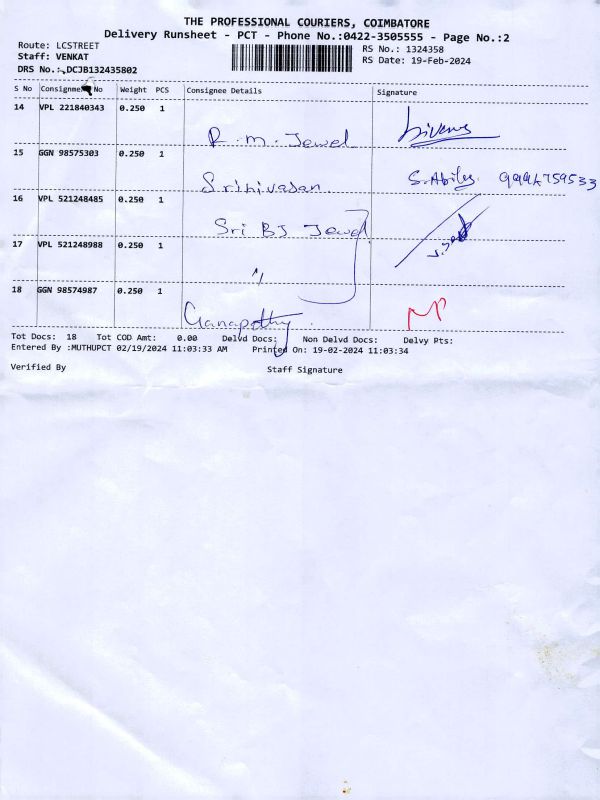 THE PROFESSIONAL COURIERS, COIMBATORE
Delivery Runsheet - PCT - Phone No.:0422-3505555 - Page No.:2
Route: LCSTREET
RS No.: 1324358
Staff: VENKAT
RS Date: 19-Feb-2024
DRS No.: DCJB132435802
S No Consignment No Weight PCS Consignee Details Signature
14 VPL 221840343 0.250 1
R. M. Jewel
15 GGN 98575303 0.250 1
Srinivasan
16 VPL 521248485 0.250 1
Sri BJ Jewel
17 VPL 521248988 0.250 1
"
18 GGN 98574987 0.250 1
Ganapathy
Tot Docs: 18 Tot COD Amt: 0.00 Delvd Docs: Non Delvd Docs: Delvy Pts:
Entered By :MUTHUPCT 02/19/2024 11:03:33 AM Printed On: 19-02-2024 11:03:34
Verified By Staff Signature